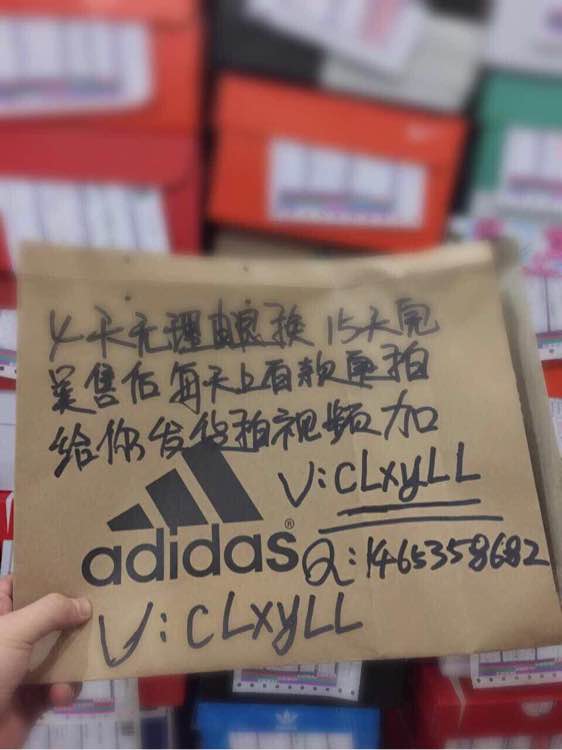 七天无理由退换 15天完
美售后 每天上百款实拍
给你发货拍视频加
V:cLxyLL
adidas®
Q:1465358682
V:cLxyLL